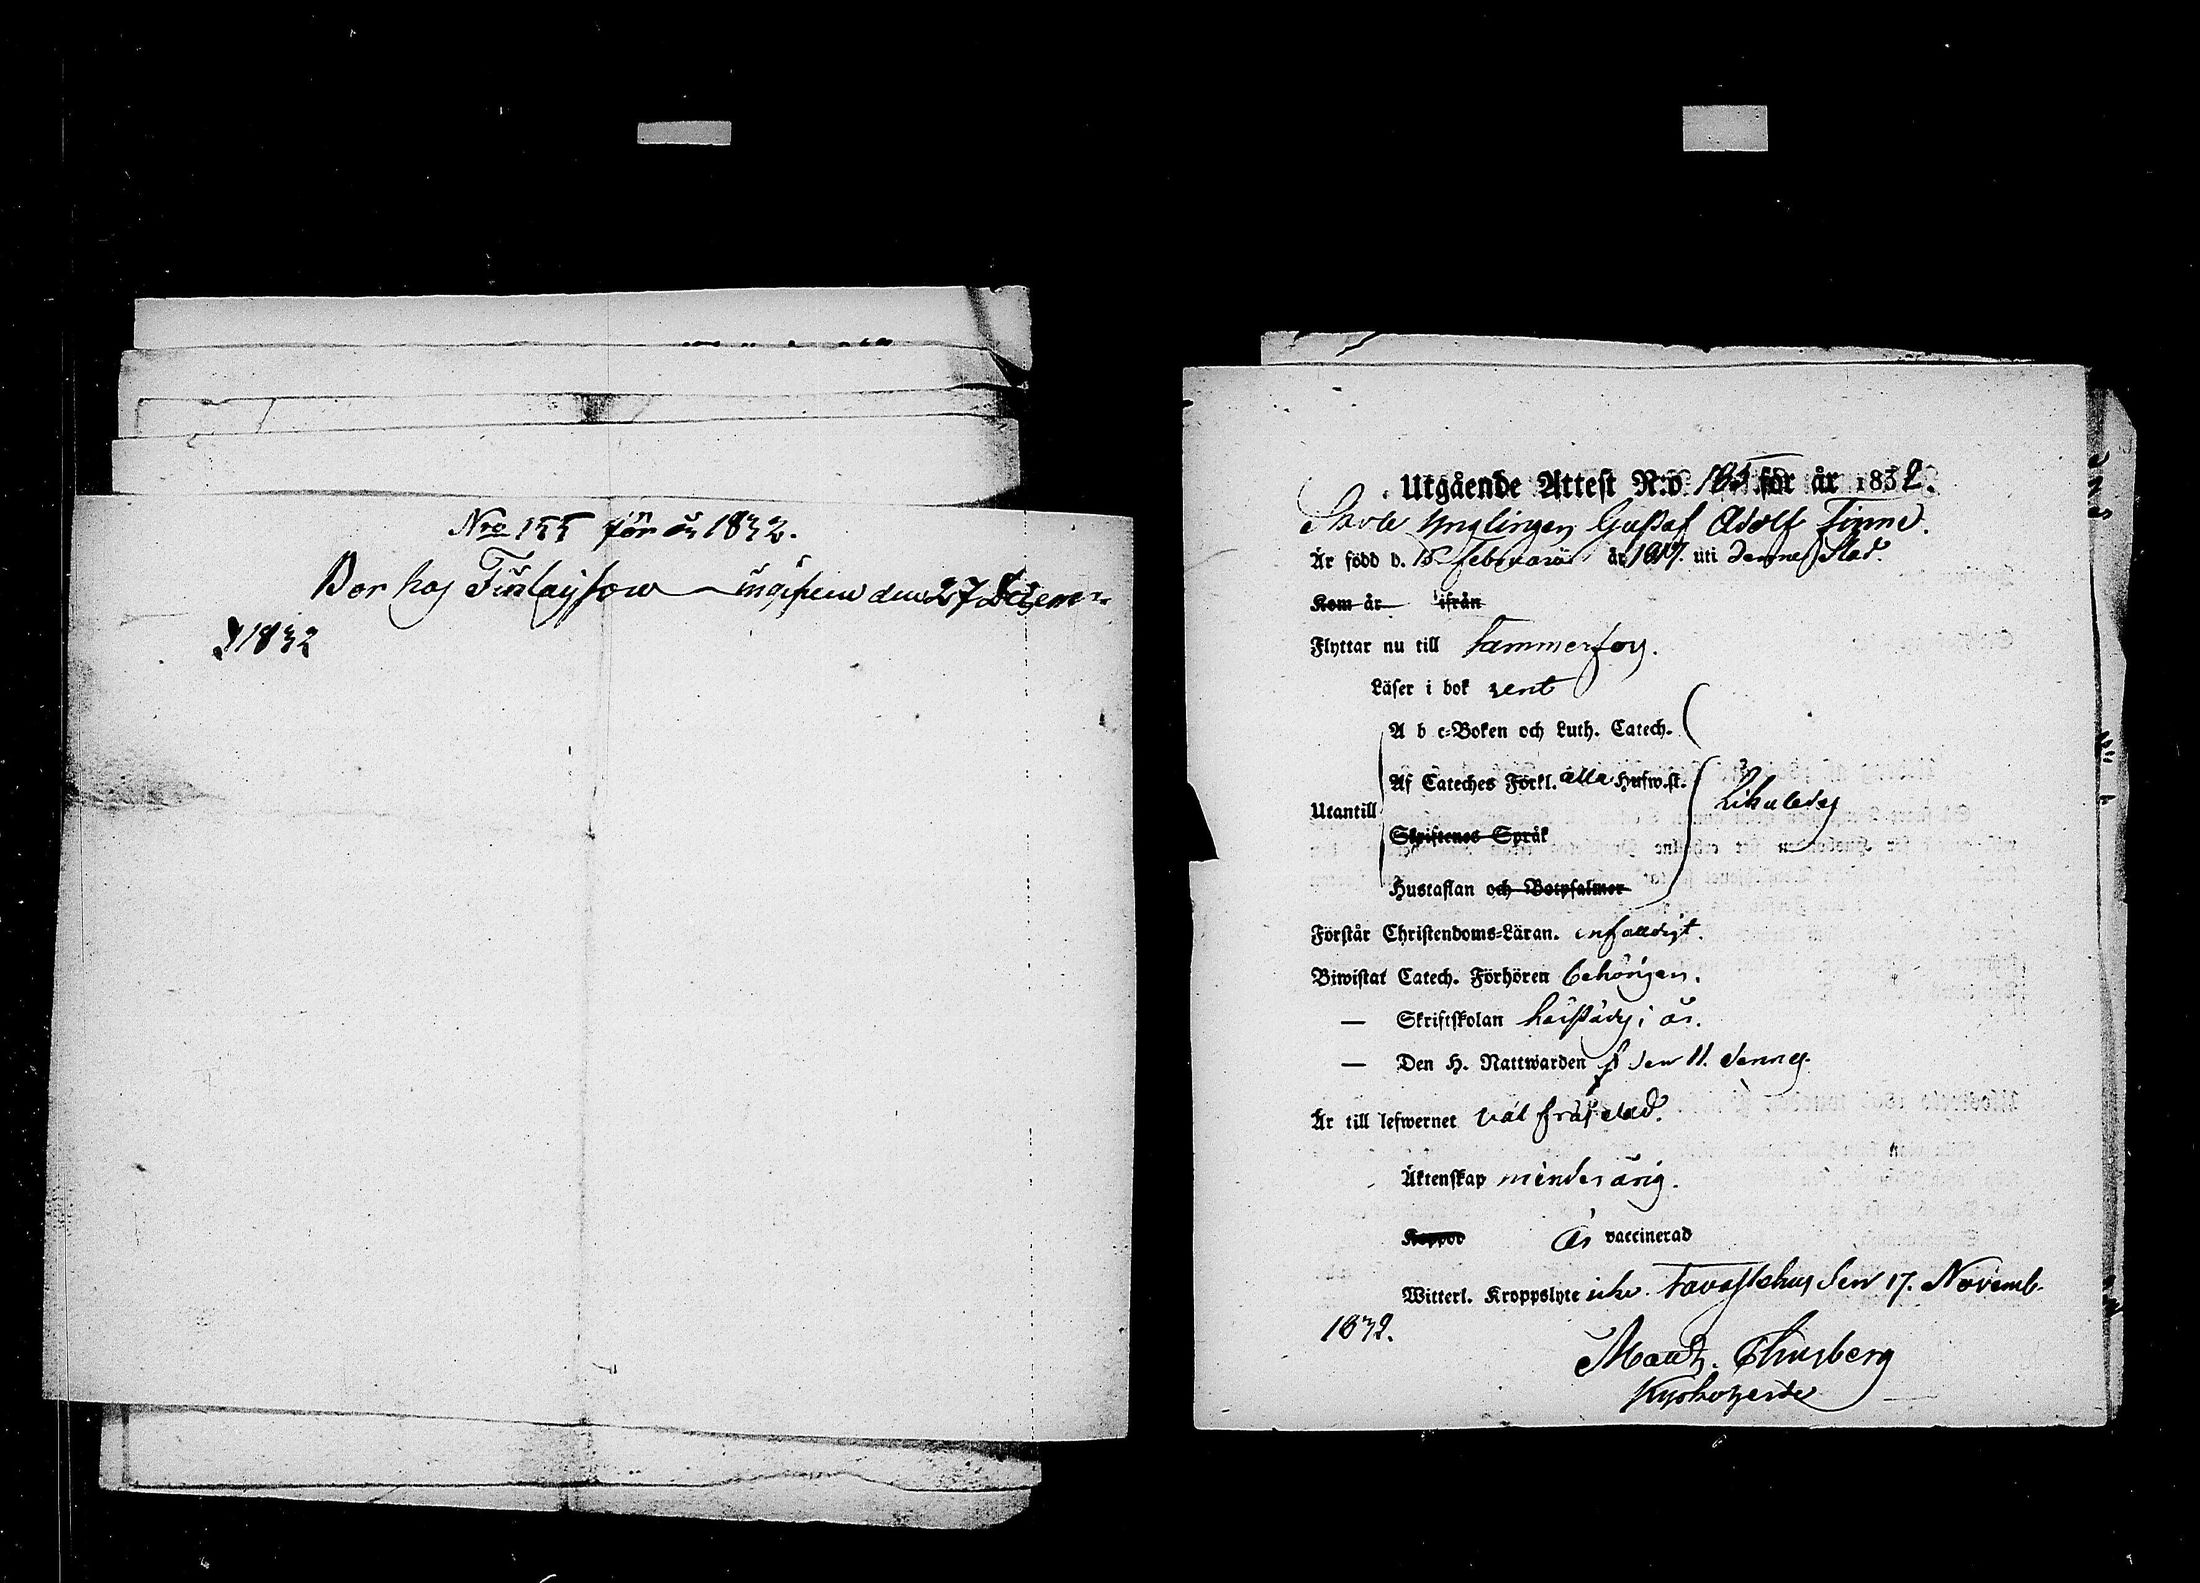 Nro 155 för år 1832.
Bor hos Finlayson — insk: den 27 Decemr
1832
Utgående Attest N:o 185 för år 1832.
Ynglingen Gustaf Adolf Finne.
Är född d. 15 Februarii år 1817. uti denna Stad.
Kom år ifrån
Flyttar nu till Tammerfors.
Läser i bok rent
A b c-Boken och Luth. Catech.
Af Cateches Förkl. alla Hufw.st.
Utantill
Likaledes
Skriftenes Språk
Hustaflan och Botpsalmer
Förstår Christendoms-Läran. enfaldigt.
Biwistat Catech. Förhören behörigen.
— Skriftskolan härstädes i år.
— Den H. Nattwarden den 11. dennes.
Är till lefwernet väl frejdad.
Äktenskap minderårig.
Koppor Är vaccinerad
Witterl. Kroppslyte icke. Tavastehus den 17. Novemb.
1832.
Maur. Thusberg
Kyrkoherde